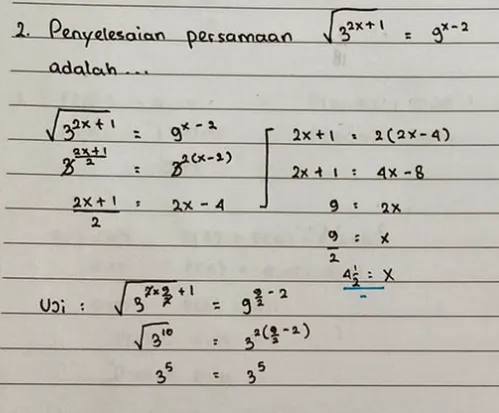 2. Penyelesaian persamaan √(3^(2x+1)) = 9^(x-2)
adalah...
√(3^(2x+1)) = 9^(x-2)
3^((2x+1)/2) = 3^(2(x-2))
(2x+1)/2 = 2x-4
2x+1 = 2(2x-4)
2x+1 = 4x-8
9 = 2x
9/2 = x
4 1/2 = x
Uji : √(3^(2×9/2+1)) = 9^(9/2-2)
√(3^10) = 3^(2(9/2-2))
3^5 = 3^5